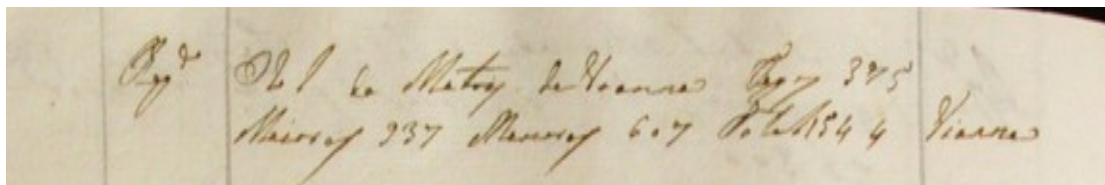 Reg.do Rol da Matriz de Vianna Fogos 375
Maiores 937 Menores 607 Total 1544 Vianna